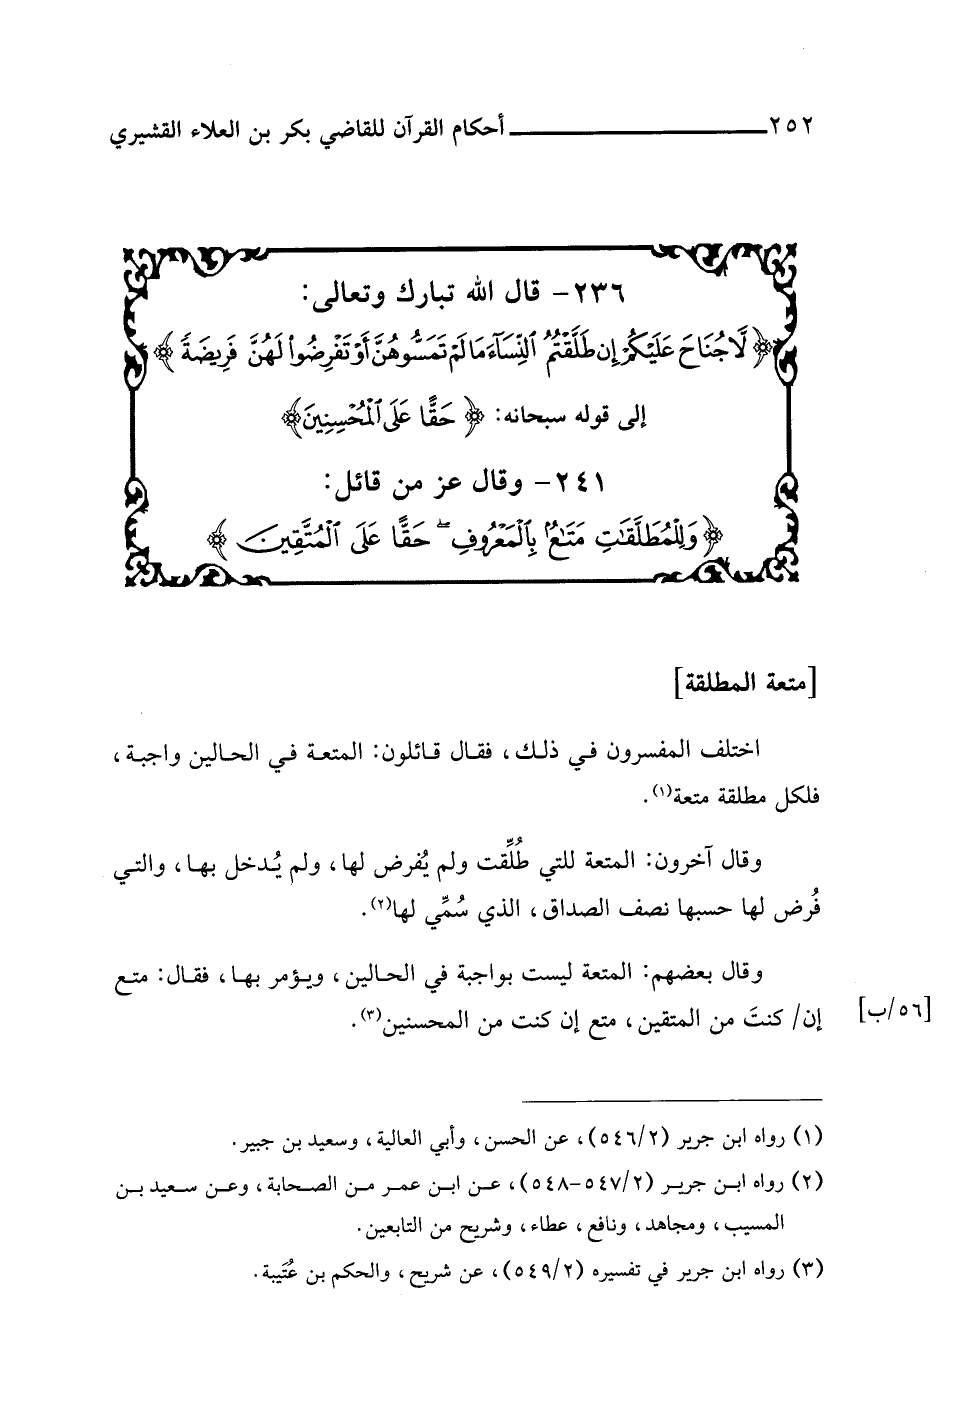 ٢٥٢ أحكام القرآن للقاضي بكر بن العلاء القشيري
٢٣٦- قال الله تبارك وتعالى:
﴿ لَّا جُنَاحَ عَلَيْكُمْ إِن طَلَّقْتُمُ ٱلنِّسَآءَ مَا لَمْ تَمَسُّوهُنَّ أَوْ تَفْرِضُوا۟ لَهُنَّ فَرِيضَةً ﴾
إلى قوله سبحانه: ﴿ حَقًّا عَلَى ٱلْمُحْسِنِينَ ﴾
٢٤١- وقال عز من قائل:
﴿ وَلِلْمُطَلَّقَٰتِ مَتَٰعٌۢ بِٱلْمَعْرُوفِ ۖ حَقًّا عَلَى ٱلْمُتَّقِينَ ﴾
[متعة المطلقة]
اختلف المفسرون في ذلك، فقال قائلون: المتعة في الحالين واجبة،
فلكل مطلقة متعة(١).
وقال آخرون: المتعة للتي طُلِّقت ولم يُفرض لها، ولم يُدخل بها، والتي
فُرض لها حسبها نصف الصداق، الذي سُمِّي لها(٢).
وقال بعضهم: المتعة ليست بواجبة في الحالين، ويؤمر بها، فقال: متع
إن/ كنتَ من المتقين، متع إن كنت من المحسنين(٣).
[٥٦/ب]
(١) رواه ابن جرير (٥٤٦/٢)، عن الحسن، وأبي العالية، وسعيد بن جبير.
(٢) رواه ابن جرير (٥٤٧/٢-٥٤٨)، عن ابن عمر من الصحابة، وعن سعيد بن
المسيب، ومجاهد، ونافع، عطاء، وشريح من التابعين.
(٣) رواه ابن جرير في تفسيره (٥٤٩/٢)، عن شريح، والحكم بن عُتَيبة.